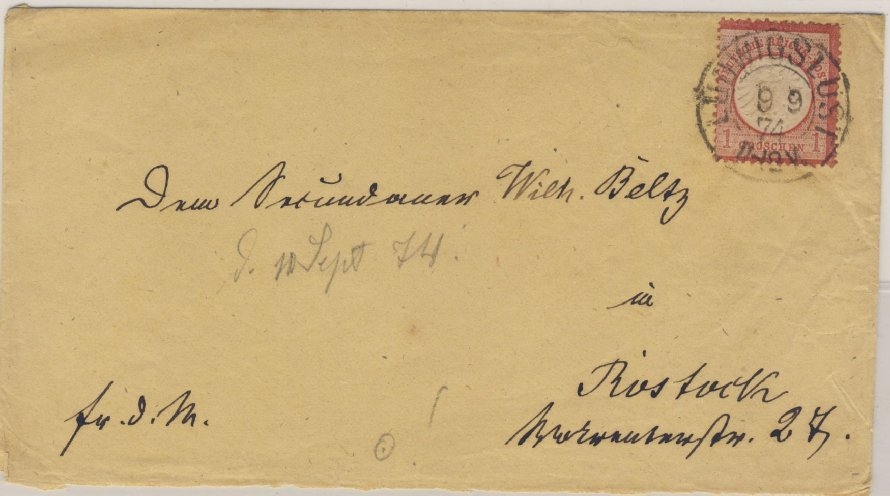 LUDWIGSLUST
9 9
74
1 GROSCHEN 1
Dem Secundaner Wilh. Beltz
d. 10 Sept 74.
in
Rostock
Wokrenterstr. 27.
fr. d. M.